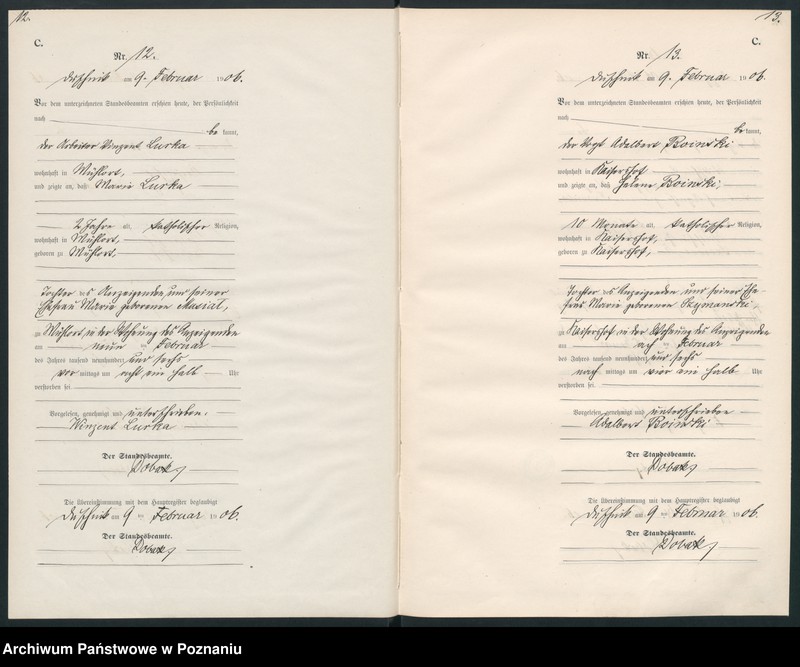 12.
C.
Nr. 12.
Duschnik am 9. Februar 1906.
Vor dem unterzeichneten Standesbeamten erschien heute, der Persönlichkeit
nach
be kannt,
der Arbeiter Vinzent Lurka
wohnhaft in Mühlort,
und zeigte an, daß Marie Lurka
2 Jahre alt, katholischer Religion,
wohnhaft in Mühlort,
geboren zu Mühlort,
Tochter des Anzeigenden und seiner
Ehefrau Marie geborenen
zu Mühlort, in der Wohnung des Anzeigenden
am neun ten Februar
des Jahres tausend neunhundert und sechs
vor mittags um acht ein halb Uhr
verstorben sei.
Vorgelesen, genehmigt und unterschrieben.
Winzent Lurka
Der Standesbeamte.
Die Übereinstimmung mit dem Hauptregister beglaubigt
Duschnik am 9 ten Februar 1906.
Der Standesbeamte.
13.
C.
Nr. 13.
Duschnik am 9. Februar 1906.
Vor dem unterzeichneten Standesbeamten erschien heute, der Persönlichkeit
nach
be kannt,
der Vogt Adalbert Roinski
wohnhaft in Kaisershof
und zeigte an, daß Helene Roinski,
10 Monate alt, katholischer Religion,
wohnhaft in Kaisershof,
geboren zu Kaisershof,
Tochter des Anzeigenden und seiner Ehe
frau Marie geborenen Szymanski,
zu Kaisershof in der Wohnung des Anzeigenden
am ach ten Februar
des Jahres tausend neunhundert und sechs
nach mittags um vier ein halb Uhr
verstorben sei.
Vorgelesen, genehmigt und unterschrieben
Adalbert Roinski
Der Standesbeamte.
Die Übereinstimmung mit dem Hauptregister beglaubigt
Duschnik am 9 ten Februar 1906.
Der Standesbeamte.
Archiwum Państwowe w Poznaniu